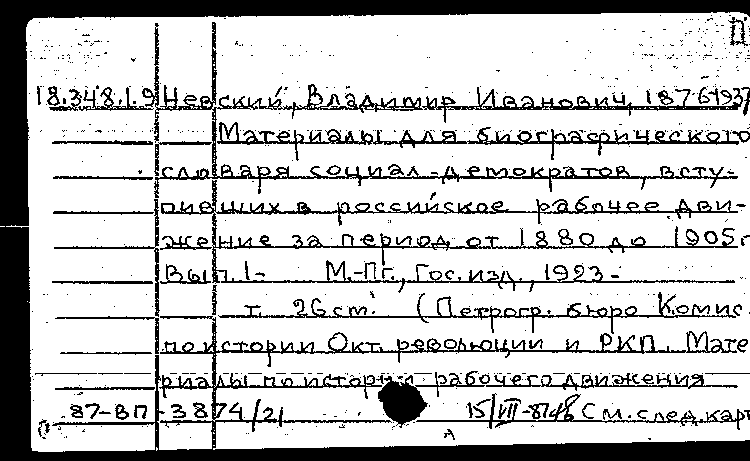 П
18.348.1.9 Невский, Владимир Иванович, 1876-1937
Материалы для биографического
словаря социал-демократов, всту-
пивших в российское рабочее дви-
жение за период от 1880 до 1905 г
Вып. 1- М.-Пг., Гос. изд., 1923-
т. 26 cm. (Петрогр. бюро Комис.
по истории Окт. революции и РКП. Мате
риалы по истории рабочего движения
87-ВП-3874/21 15/VII-87 См. след. карт